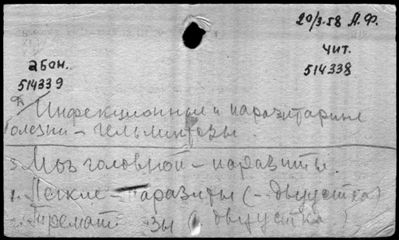 20/3.58 А.Ф.
чит.
514338
абон.
514339
Инфекционные и паразитарные
болезни - гельминтозы.
3. Мозг головной - паразиты.
1. Легкие - паразиты (- двуустка)
2. Тремат зы ( двуустка )